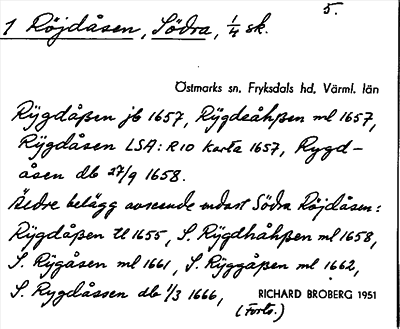 5.
1 Röjdåsen, Södra, 1/4 sk.
Östmarks sn, Fryksdals hd, Värml. län
Rÿgdåßen jb 1657, Rÿgdeåhßen ml 1657,
Rÿgdåsen LSA: R10 karta 1657, Rygd-
åsen db 27/9 1658.
Äldre belägg avseende endast Södra Röjdåsen:
Rÿgdåßen tl 1655, S. Rÿgdhåhßen ml 1658,
S. Rÿgåsen ml 1661, S. Rÿggåßen ml 1662,
S. Rygdåssen db 1/3 1666, RICHARD BROBERG 1951
(Forts.)